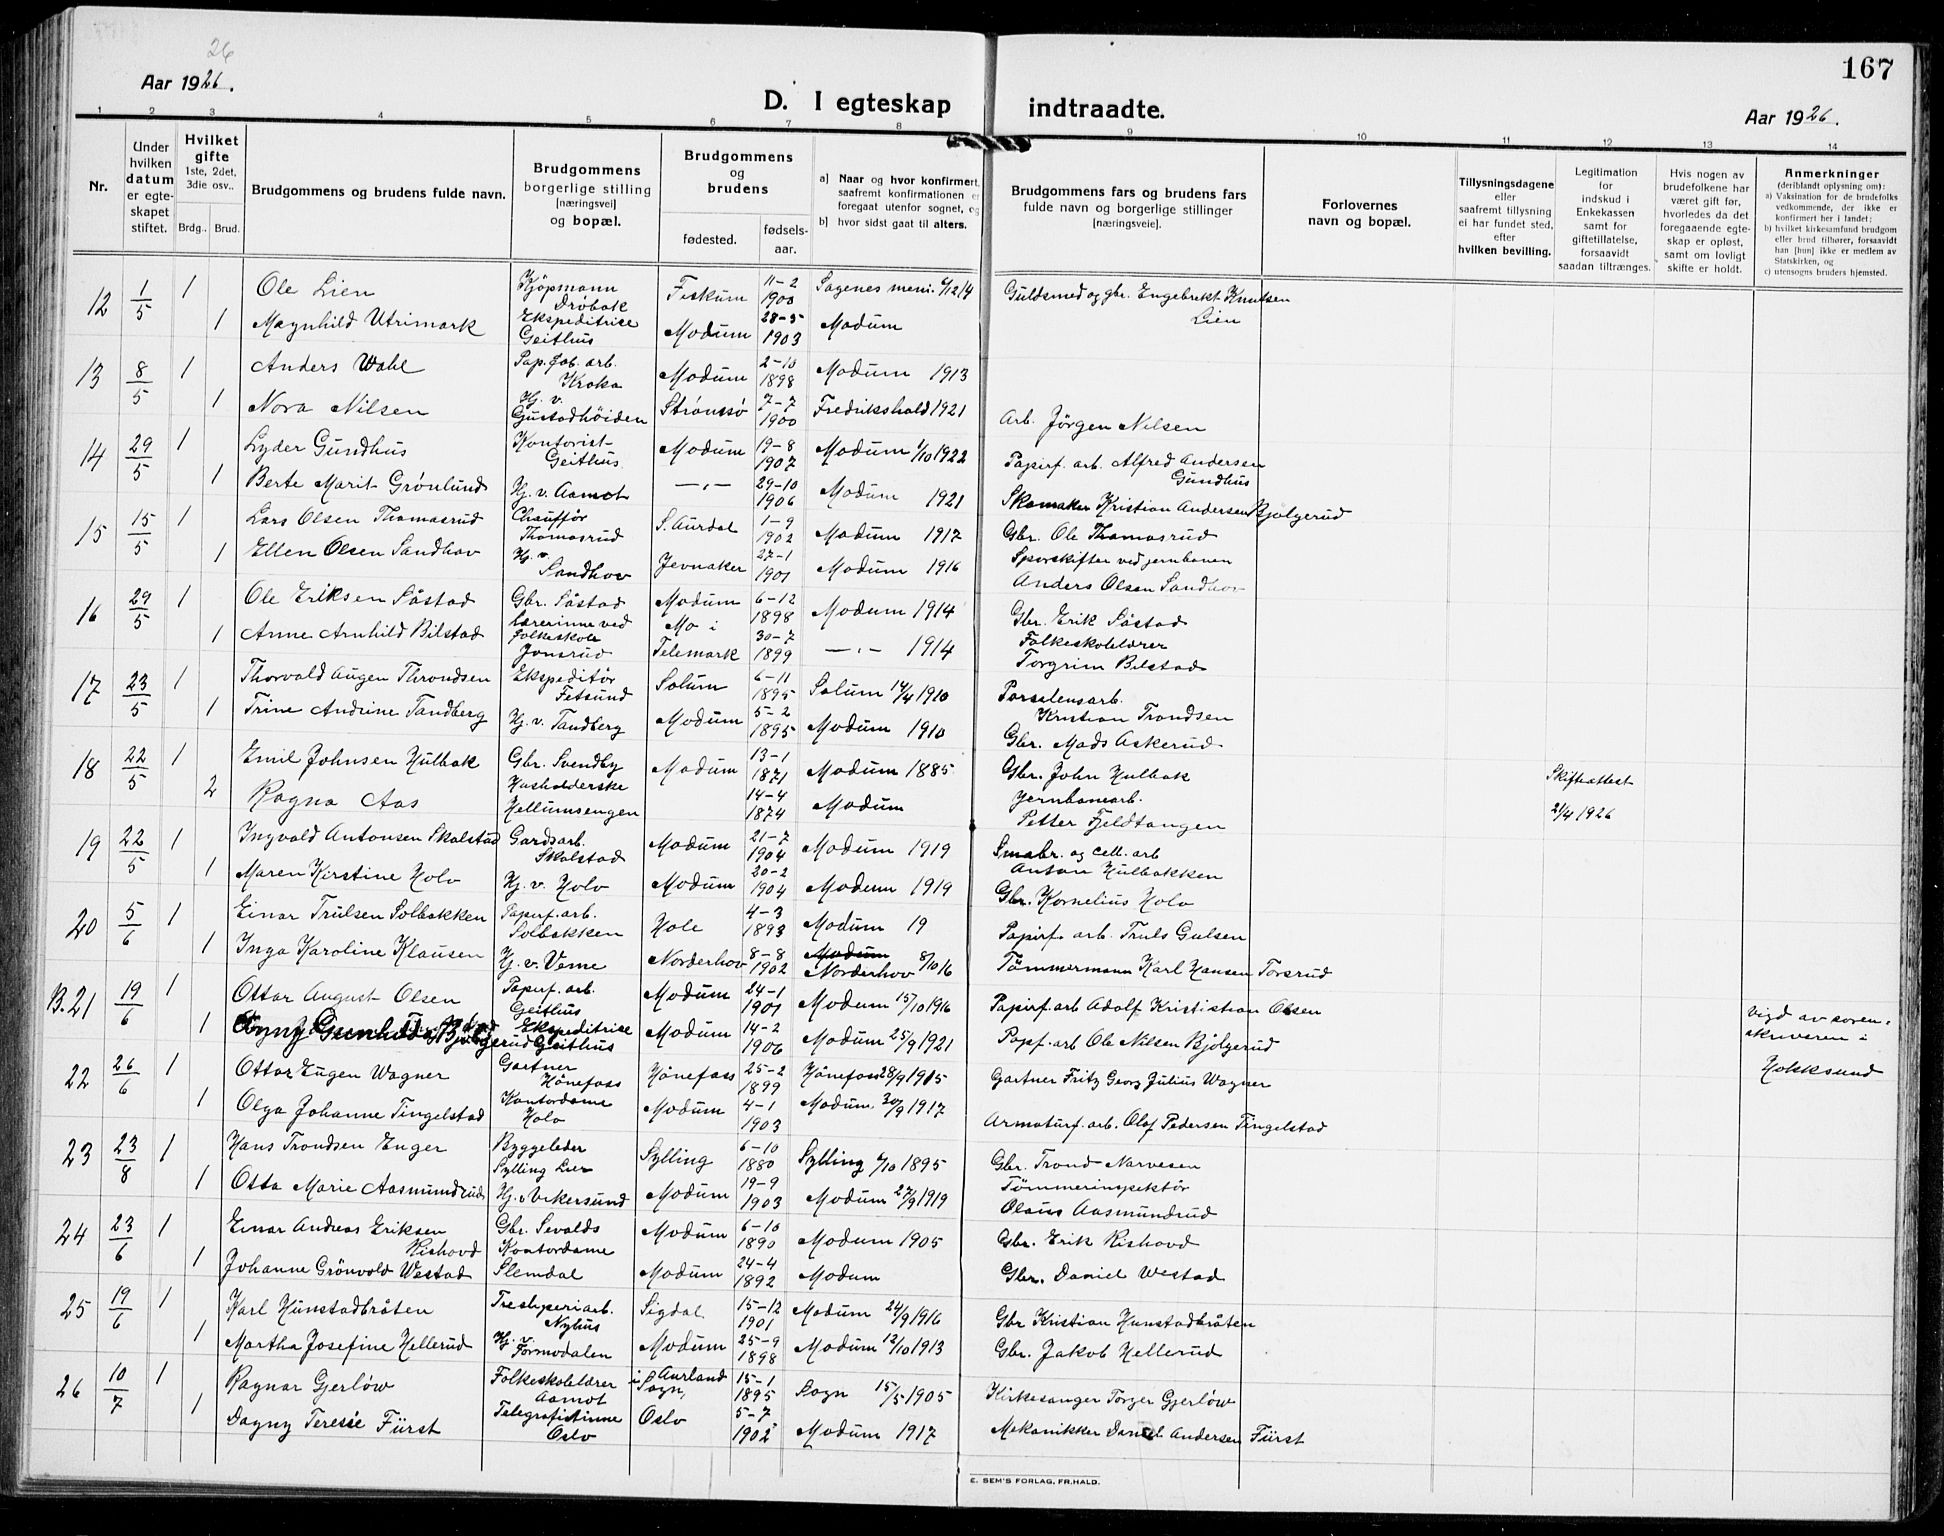 26
Aar 1926.
D. I egteskap indtraadte.
Aar 1926.
167
1 2 3 4 5 6 7 8 9 10 11 12 13 14
Nr.
Under hvilken datum er egte-skapet stiftet.
Hvilket gifte 1ste, 2det, 3die osv..
Brdg.. Brud.
Brudgommens og brudens fulde navn.
Brudgommens borgerlige stilling [næringsvei] og bopæl.
Brudgommens og brudens
fødested. fødsels-aar.
a) Naar og hvor konfirmert, saafremt konfirmationen er foregaat utenfor sognet, og
b) hvor sidst gaat til alters.
Brudgommens fars og brudens fars fulde navn og borgerlige stillinger [næringsveie].
Forlovernes navn og bopæl.
Tillysningsdagene eller saafremt tillysning ei har fundet sted, efter hvilken bevilling.
Legitimation for indskud i Enkekassen samt for giftetillatelse, forsaavidt saadan tiltrænges.
Hvis nogen av brudefolkene har været gift før, hvorledes da det foregaaende egte-skap er opløst, samt om lovligt skifte er holdt.
Anmerkninger (deriblandt oplysning om):
a) Vaksination for de brudefolks vedkommende, der ikke er konfirmert her i landet;
b) hvilket kirkesamfund brudgom eller brud tilhører, forsaavidt han [hun] ikke er medlem av Statskirken, og
c) utensogns bruders hjemsted.
12 1/5 1 Ole Lien Kjöpmann Dröbak Fiskum 11-2 1900 Sagenes meni. 6/12 14 Guldsmed og gbr. Engebrekt Knutsen Lien
1 Magnhild Utrimark Ekspeditrise Geithus Modum 28-5 1903 Modum
13 8/5 1 Anders Wahl Pap.fab. arb. Kroka Modum 2-10 1898 Modum 1913
1 Nora Nilsen Hj. v. Gustadhöiden Strömsö 7-7 1900 Fredrikshald 1921 Arb. Jörgen Nilsen
14 29/5 1 Lyder Gundhus Kontorist Geithus Modum 19-8 1907 Modum 1/10 1922 Papirf. arb. Alfred Andersen Gundhus
1 Berte Marit Grönlund Hj. v. Aamot —„— 29-10 1906 Modum 1921 Skomaker Kristian Andersen Bjölgerud
15 15/5 1 Lars Olsen Thomasrud Chaufför Thomasrud S. Aurdal 1-9 1902 Modum 1917 Gbr. Ole Thomasrud
1 Ellen Olsen Sandhov Hj. v. Sandhov Jevnaker 27-1 1901 Modum 1916 Sporskifter ved jernbanen Anders Olsen Sandhov
16 29/5 1 Ole Eriksen Såstad Gbr. Såstad Modum 6-12 1898 Modum 1914 Gbr. Erik Såstad
1 Anne Arnhild Bilstad lærerinne ved folkeskole Jonsrud Mo i Telemark 30-7 1899 —„— 1914 Folkeskolelærer Torgrim Bilstad
17 23/5 1 Thorvald Augen Throndsen Ekspeditör Fetsund Solum 6-11 1895 Solum 14/4 1910 Porselensarb. Kristian Trondsen
1 Trine Andrine Tandberg Hj. v. Tandberg Modum 5-2 1895 Modum 1910 Gbr. Mads Askerud
18 22/5 1 Emil Johnsen Hulbak Gbr. Svendby Modum 13-1 1871 Modum 1885 Gbr. John Hulbak
2 Ragna Aas Husholderske Hellumsengen 14-4 1874 Modum Jernbanearb. Petter Fjeldtangen Skifteattest 21/4 1926
19 22/5 1 Ingvald Antonsen Skalstad Gardsarb. Skalstad Modum 21-7 1904 Modum 1919 Smabr. og cell. arb Anton Hulbakken
1 Maren Kirstine Holv Hj. v. Holv Modum 20-2 1904 Modum 1919 Gbr. Kornelius Holv
20 5/6 1 Einar Trulsen Solbakken Papirf. arb. Solbakken Hole 4-3 1893 Modum 19 Papirf. arb. Truls Gulsen
1 Inga Karoline Klausen Hj. v. Veme Norderhov 8-8 1902 Modum Norderhov 8/10 16 Tömmermann Karl Hansen Torsrud
B. 21 19/6 1 Ottar August Olsen Papirf. arb. Geithus Modum 24-1 1901 Modum 15/10 1916 Papirf. arb Adolf Krististian Olsen
1 Gunhild Bjölgerud Ekspeditrise Geithus Modum 14-2 1906 Modum 25/9 1921 Papf. arb Ole Nilsen Bjölgerud vigd av soren-skriveren i Hokksund
22 26/6 1 Ottar Eugen Wagner Gartner Hönefoss Hönefoss 25-2 1899 Hönefoss 28/9 1915 Gartner Fritz Georg Julius Wagner
1 Olga Johanne Tingelstad Kontordame Holv Modum 4-1 1903 Modum 30/9 1917 Armaturf. arb. Olaf Pedersen Tingelstad
23 23/8 1 Hans Trondsen Enger Byggeleder Sylling Lier Sylling 6-10 1880 Sylling 6/10 1895 Gbr. Trond Narvesen
1 Otta Marie Aasmundrud Hj. v Vikersund Modum 19-9 1903 Modum 27/9 1919 Tömmerinspektör Olaus Aasmundrud
24 23/6 1 Einar Andreas Eriksen Rishovd Gbr. Sevalds Modum 6-10 1890 Modum 1905 Gbr. Erik Rishovd
1 Johanne Grönvold Westad Kontordame Slemdal Modum 24-4 1892 Modum Gbr. Daniel Westad
25 19/6 1 Karl Hunstadbråten Tresliperiarb. Nyhus Sigdal 15-12 1901 Modum 24/9 1916 Gbr Kristian Hunstadbråten
1 Martha Josefine Hellerud Hj. v. Formodalen Modum 25-9 1898 Modum 12/10 1913 Gbr. Jakob Hellerud
26 10/7 1 Ragnar Gjerlöw Folkeskolelærer Aamot Aurland i Sogn, 15-1 1895 Sogn 15/5 1905 Kirkesanger Torger Gjerlöw
1 Dagny Terese Fürst Telegrafistinne Oslo Oslo 5-7 1902 Modum 1917 Mekanikker Daniel Andersen Fürst
E. SEM'S FORLAG, FR.HALD.